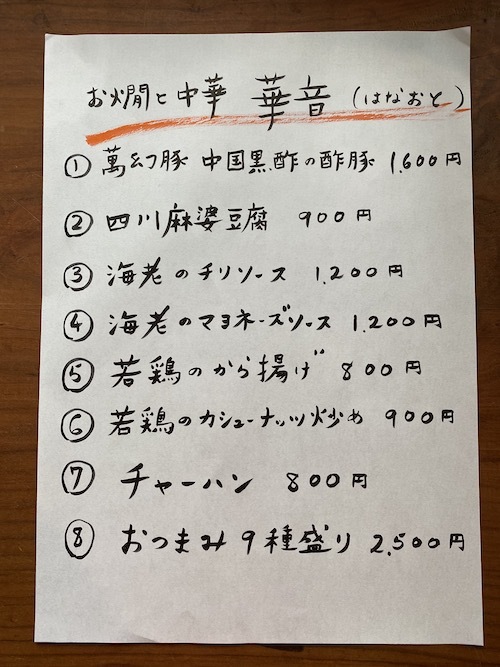 お燗と中華 華音 (はなおと)
① 萬幻豚 中国黒酢の酢豚 1,600円
② 四川麻婆豆腐 900円
③ 海老のチリソース 1,200円
④ 海老のマヨネーズソース 1,200円
⑤ 若鶏のから揚げ 800円
⑥ 若鶏のカシューナッツ炒め 900円
⑦ チャーハン 800円
⑧ おつまみ9種盛り 2,500円